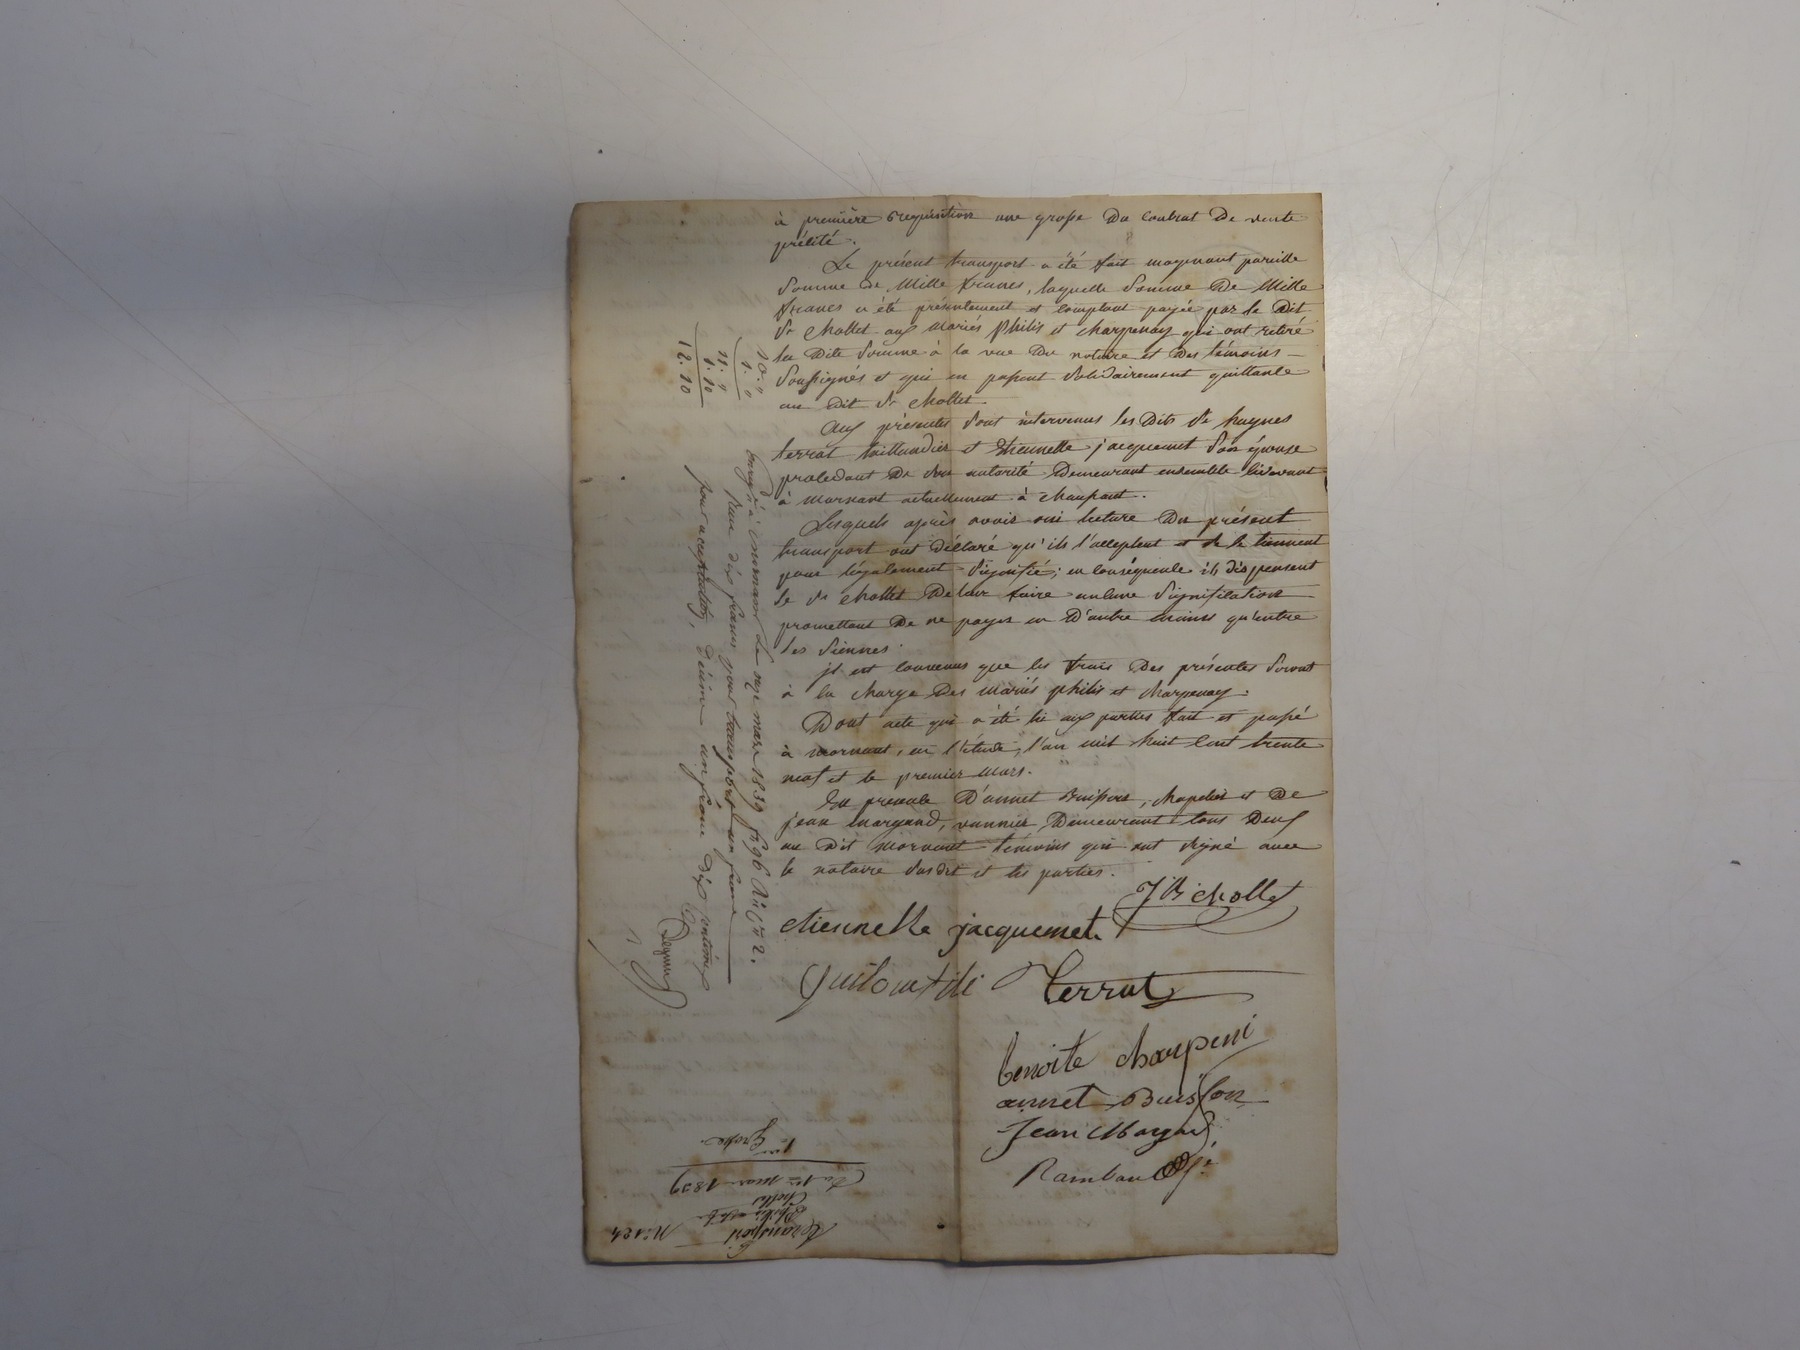 à première requisition une grosse du contrat de vente
précité.
Le présent transport a été fait moyenant pareille
somme de Mille francs, laquelle somme de Mille
francs a été présentement et comptant payée par le dit
Sr chollet aux mariés philis et charpenay qui ont retiré
la dite somme à la vue du notaire et des témoins
soussignés et qui en passent solidairement quittance
au dit Sr chollet.
Aux présentes sont intervenus les dits Sr hugues
terrat taillandier et etiennette jacquemet son épouse
procédant de son autorité demeurant ensemble cidevant
à mornant actuellement à chaponost.
Lesquels après avoir oui lecture du présent
transport ont déclaré qu'ils l'acceptent et se le tiennent
pour légalement signifié; en conséquence ils dispensent
le Sr chollet de leur faire aucune signification
promettant de ne payer en d'autre mains qu'entre
les siennes.
il est convenus que les frais des présentes seront
à la charge des mariés philis et charpenay.
Dont acte qui a été lu aux parties fait et passé
à mornant, en l'étude, l'an mil huit cent trente
neuf et le premier mars.
En présence d'annet Buisson, chapelier et de
jean margand, vannier demeurant tous deux
au dit mornant témoins qui ont signé avec
le notaire susdit et les parties.
JB chollet
etiennette jacquemet
terrat
benoite charpeni
annet Buisson
Jean
Rambaud
10. "
1. "
11. "
1. 10
12. 10
à mornant le onze mars 1839 f° 96
dix francs pour transport un franc
pour acceptation, décime un franc dix centimes
N° 124
transport
philis
Chollet
Du 1er mars 1839
1ère Grosse